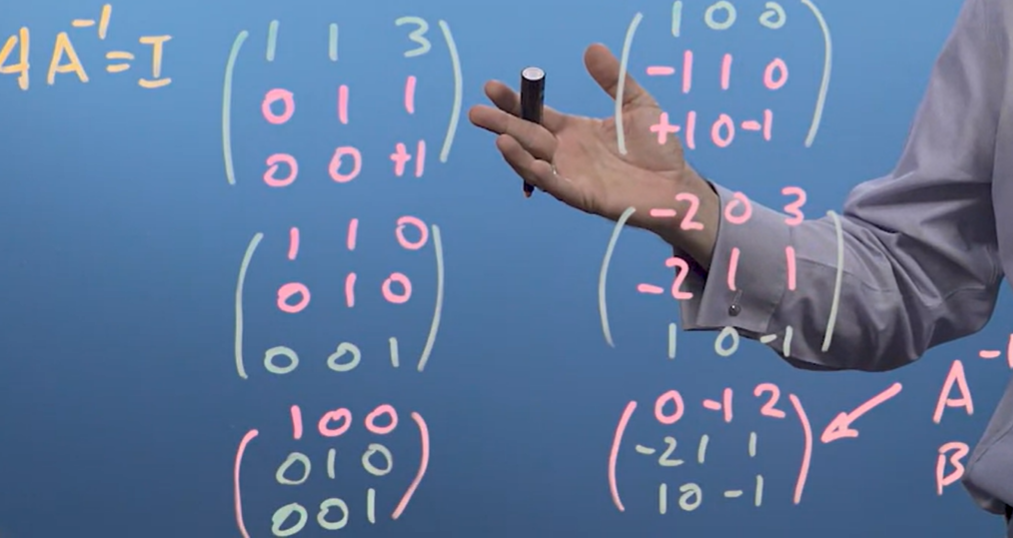 4A⁻¹=I
1 1 3
0 1 1
0 0 +1
1 0 0
-1 1 0
+1 0 -1
1 1 0
0 1 0
0 0 1
-2 0 3
-2 1 1
1 0 -1
1 0 0
0 1 0
0 0 1
0 -1 2
-2 1 1
1 0 -1
A⁻¹
B